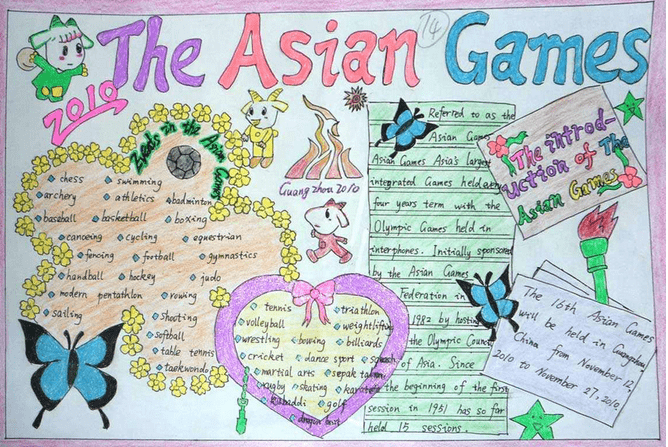 The Asian Games
14
2010
in the Asian Games
chess swimming
archery athletics badminton
baseball basketball boxing
canoeing cycling equestrian
fencing football gymnastics
handball hockey judo
modern pentathlon rowing
sailing shooting
softball
table tennis
taekwondo
Guangzhou 2010
tennis triathlon
volleyball weightlifting
wrestling bowing billiards
cricket dance sport squash
martial arts sepak takraw
rugby skating karate
kabaddi golf
dragon boat
Referred to as the
Asian Games,
Asian Games Asia's largest
integrated Games held every
four years term with the
Olympic Games held in
interphones. Initially sponsored
by the Asian Games
Federation in
1982 by hosting
the Olympic Council
of Asia. Since
the beginning of the first
session in 1951 has so far
held 15 sessions.
The introd-
uction of The
Asian Games
The 16th Asian Games
will be held in Guangzhou
China from November 12,
2010 to November 27, 2010